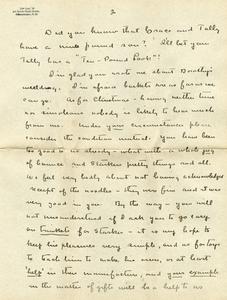 2
Did you know that Grace and Tally
have a nine pound son? I'll bet your
Tally has a "Ten-Pound Look!"
I'm glad you wrote me about Dorothy's
wedding. I'm afraid baskets are as far as we
can go. As for Christmas - having neither time
nor simoleons nobody is likely to hear much
from me. Under your circumstances please
consider the condition mutual. You have been
too good to us already - what with a whole jug
of bounce and Starkey's pretty things and all.
We feel very badly about not having acknowledged
receipt of the noodles - they were fine and it was
very good in you. By the way - you will
not misunderstand if I ask you to go easy
on trinkets for - it is my hope to
keep his pleasures very simple, and as far as
to teach him to make his own, or at least
help in their manufacture, and your example
in the matter of gifts will be a help to us